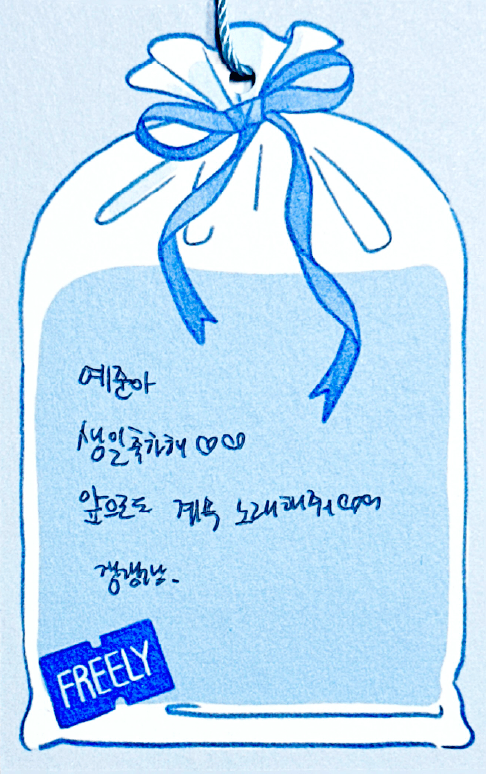 예준아
생일축하해 ♡♡
앞으로도 계속 노래해줘 ♡♡
FREELY